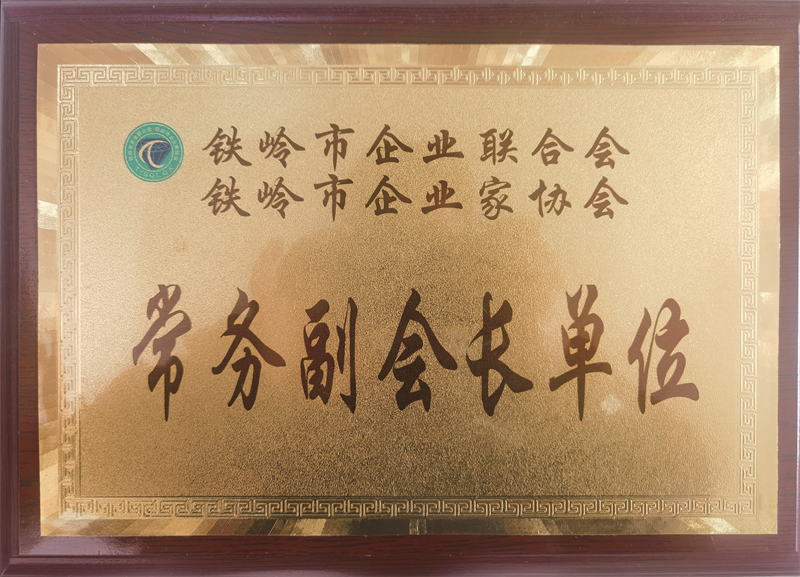 铁岭市企业联合会
铁岭市企业家协会
常务副会长单位